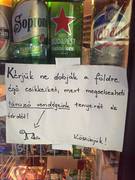 Soproni
BUDAPEST
Kérjük ne dobják a földre
égő csikkeiket, mert megsebesítheti
támaszó vendégeink tenyerét és
térdét!
Köszönjük!